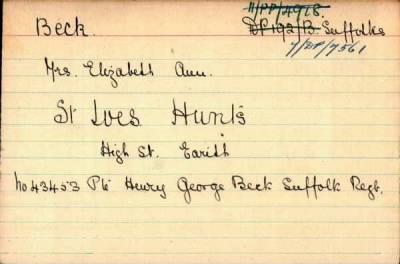 11/PP/4918.
Beck. DP 192/B. Suffolks
7/DP/7561
Mrs. Elizabeth Ann.
St Ives Hunts
High St. Earith
No 43453 Pte Henry George Beck Suffolk Regt.